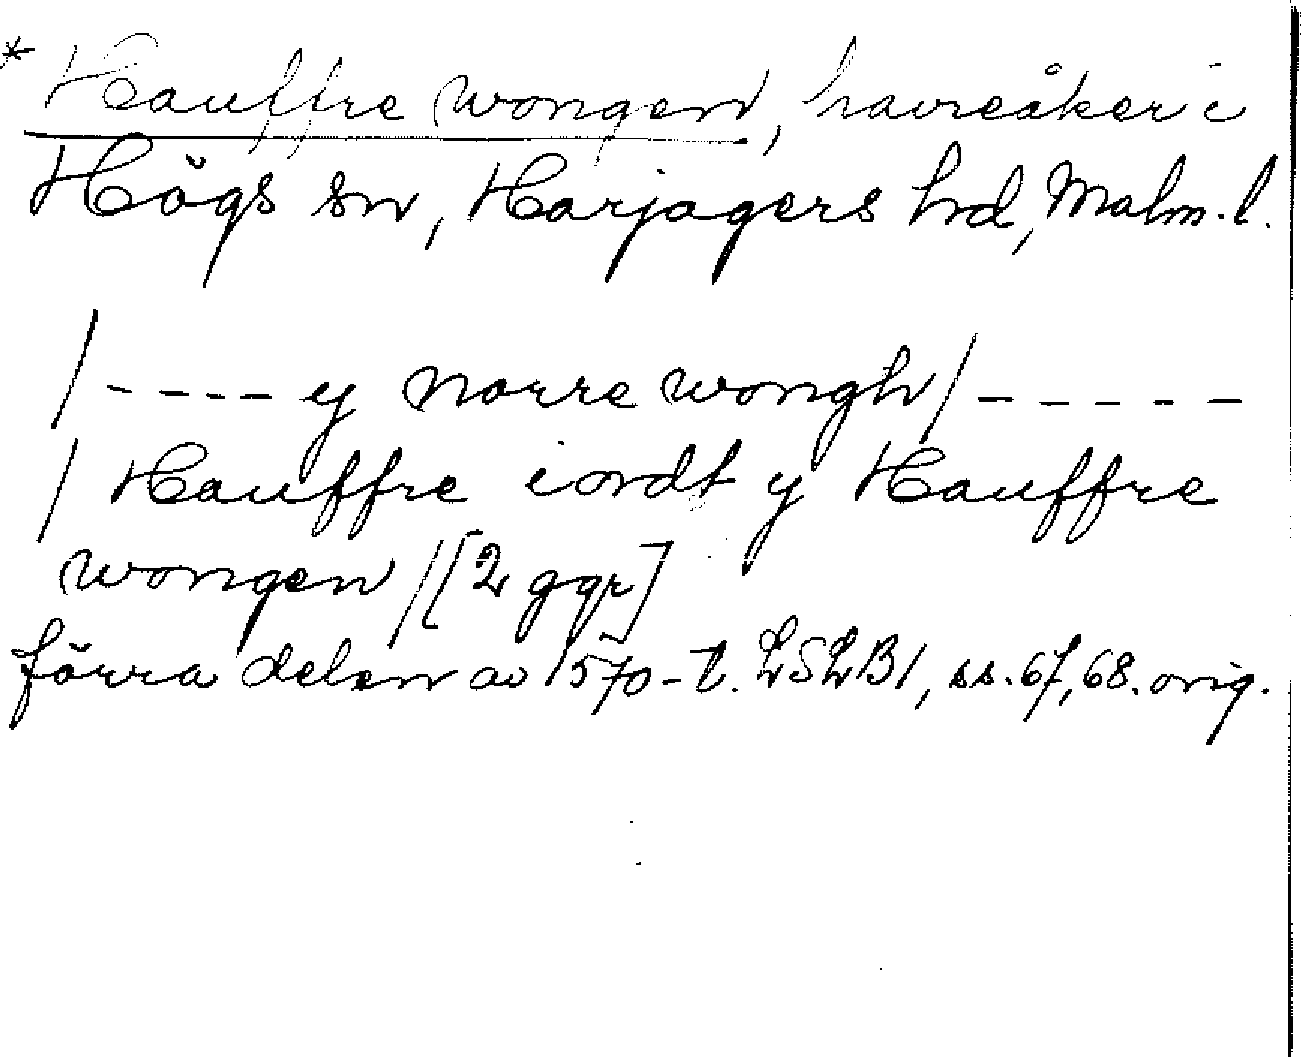 * Hauffre wongen, havreåker i
Högs sn, Harjagers hd, Malm. l.
/ - - - - y norre wongh / - - - - -
/ Hauffre iordt y Hauffre
wongen / [2 ggr]
förra delen av 1570-t. LSLB1, ss. 67, 68. orig.